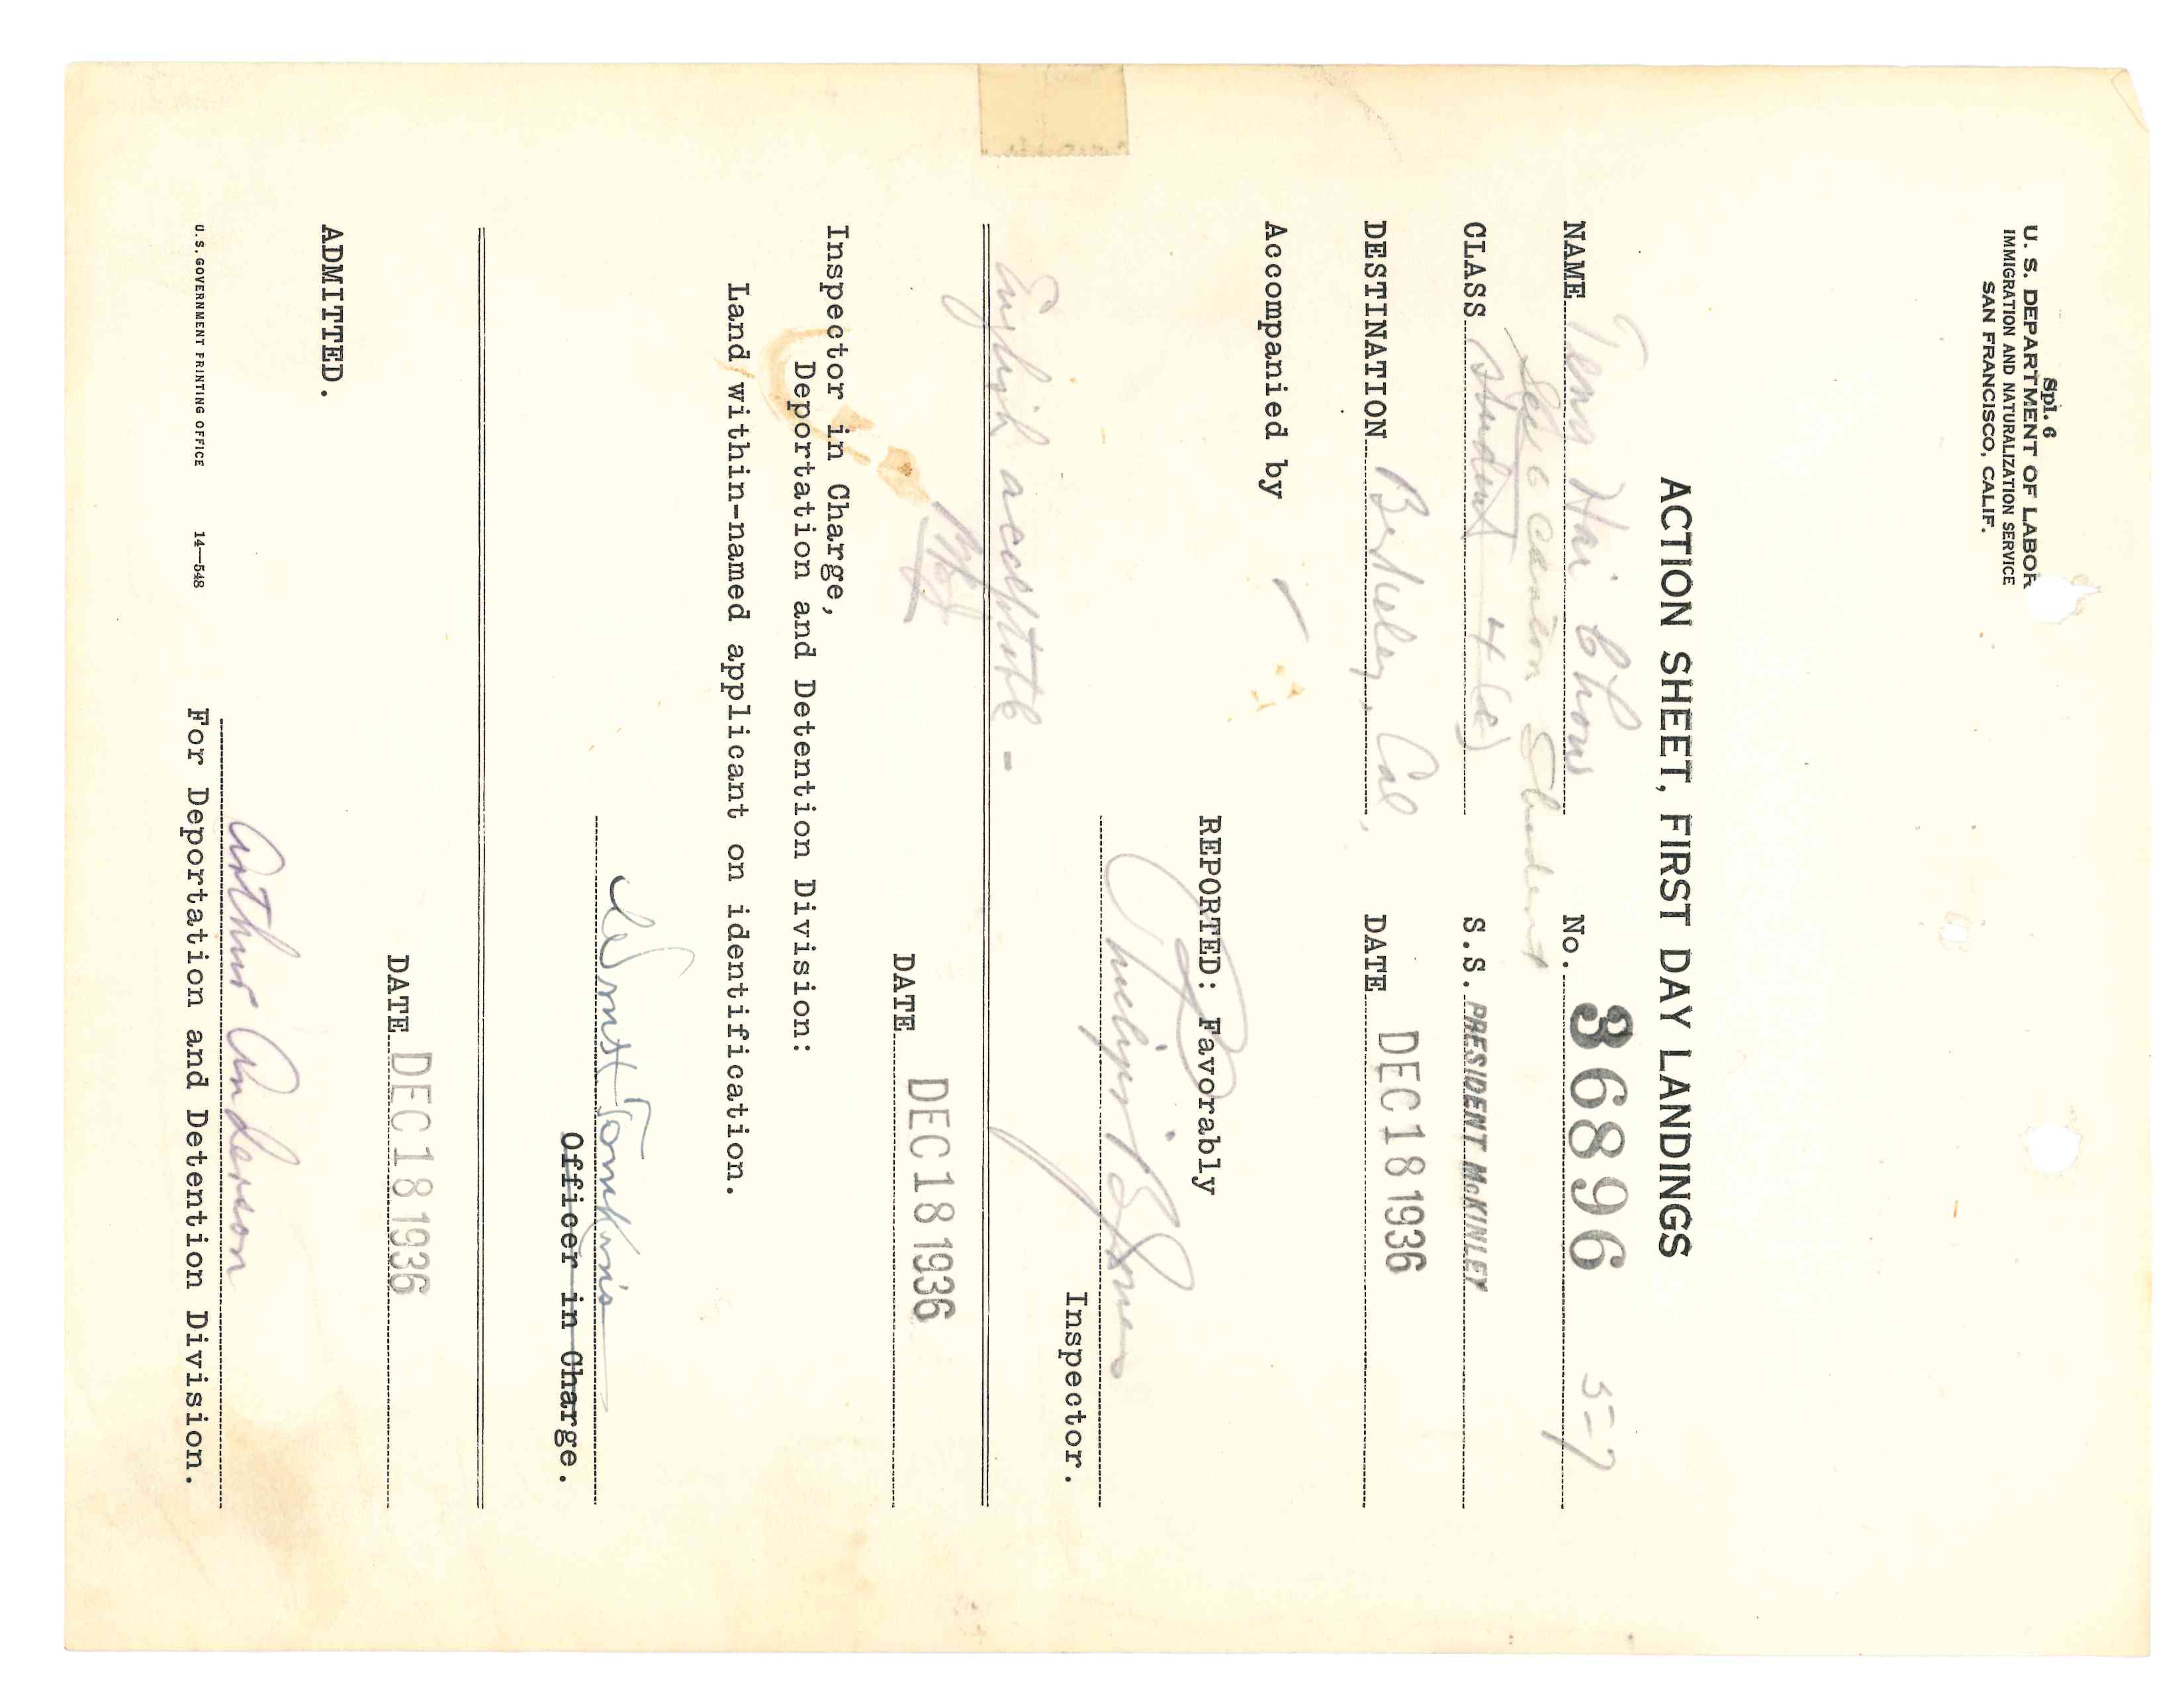 Spl. 6
U. S. DEPARTMENT OF LABOR
IMMIGRATION AND NATURALIZATION SERVICE
SAN FRANCISCO, CALIF.
ACTION SHEET, FIRST DAY LANDINGS
NAME Teng Hai Chow No. 36896 5-7
Sec 6 Canton Student
CLASS student 4 (e) S.S. PRESIDENT McKINLEY
DESTINATION Berkeley, Cal. DATE DEC 18 1936
Accompanied by
REPORTED: Favorably
B Jones
Inspector.
English acceptable -
DATE DEC 18 1936
Inspector in Charge,
Deportation and Detention Division:
Land within-named applicant on identification.
Tomkins
Officer in Charge.
DATE DEC 18 1936
ADMITTED.
Arthur Anderson
For Deportation and Detention Division.
U.S. GOVERNMENT PRINTING OFFICE 14—548